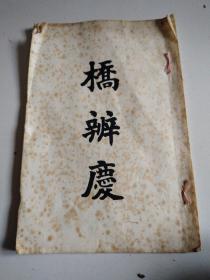 橋辦慶